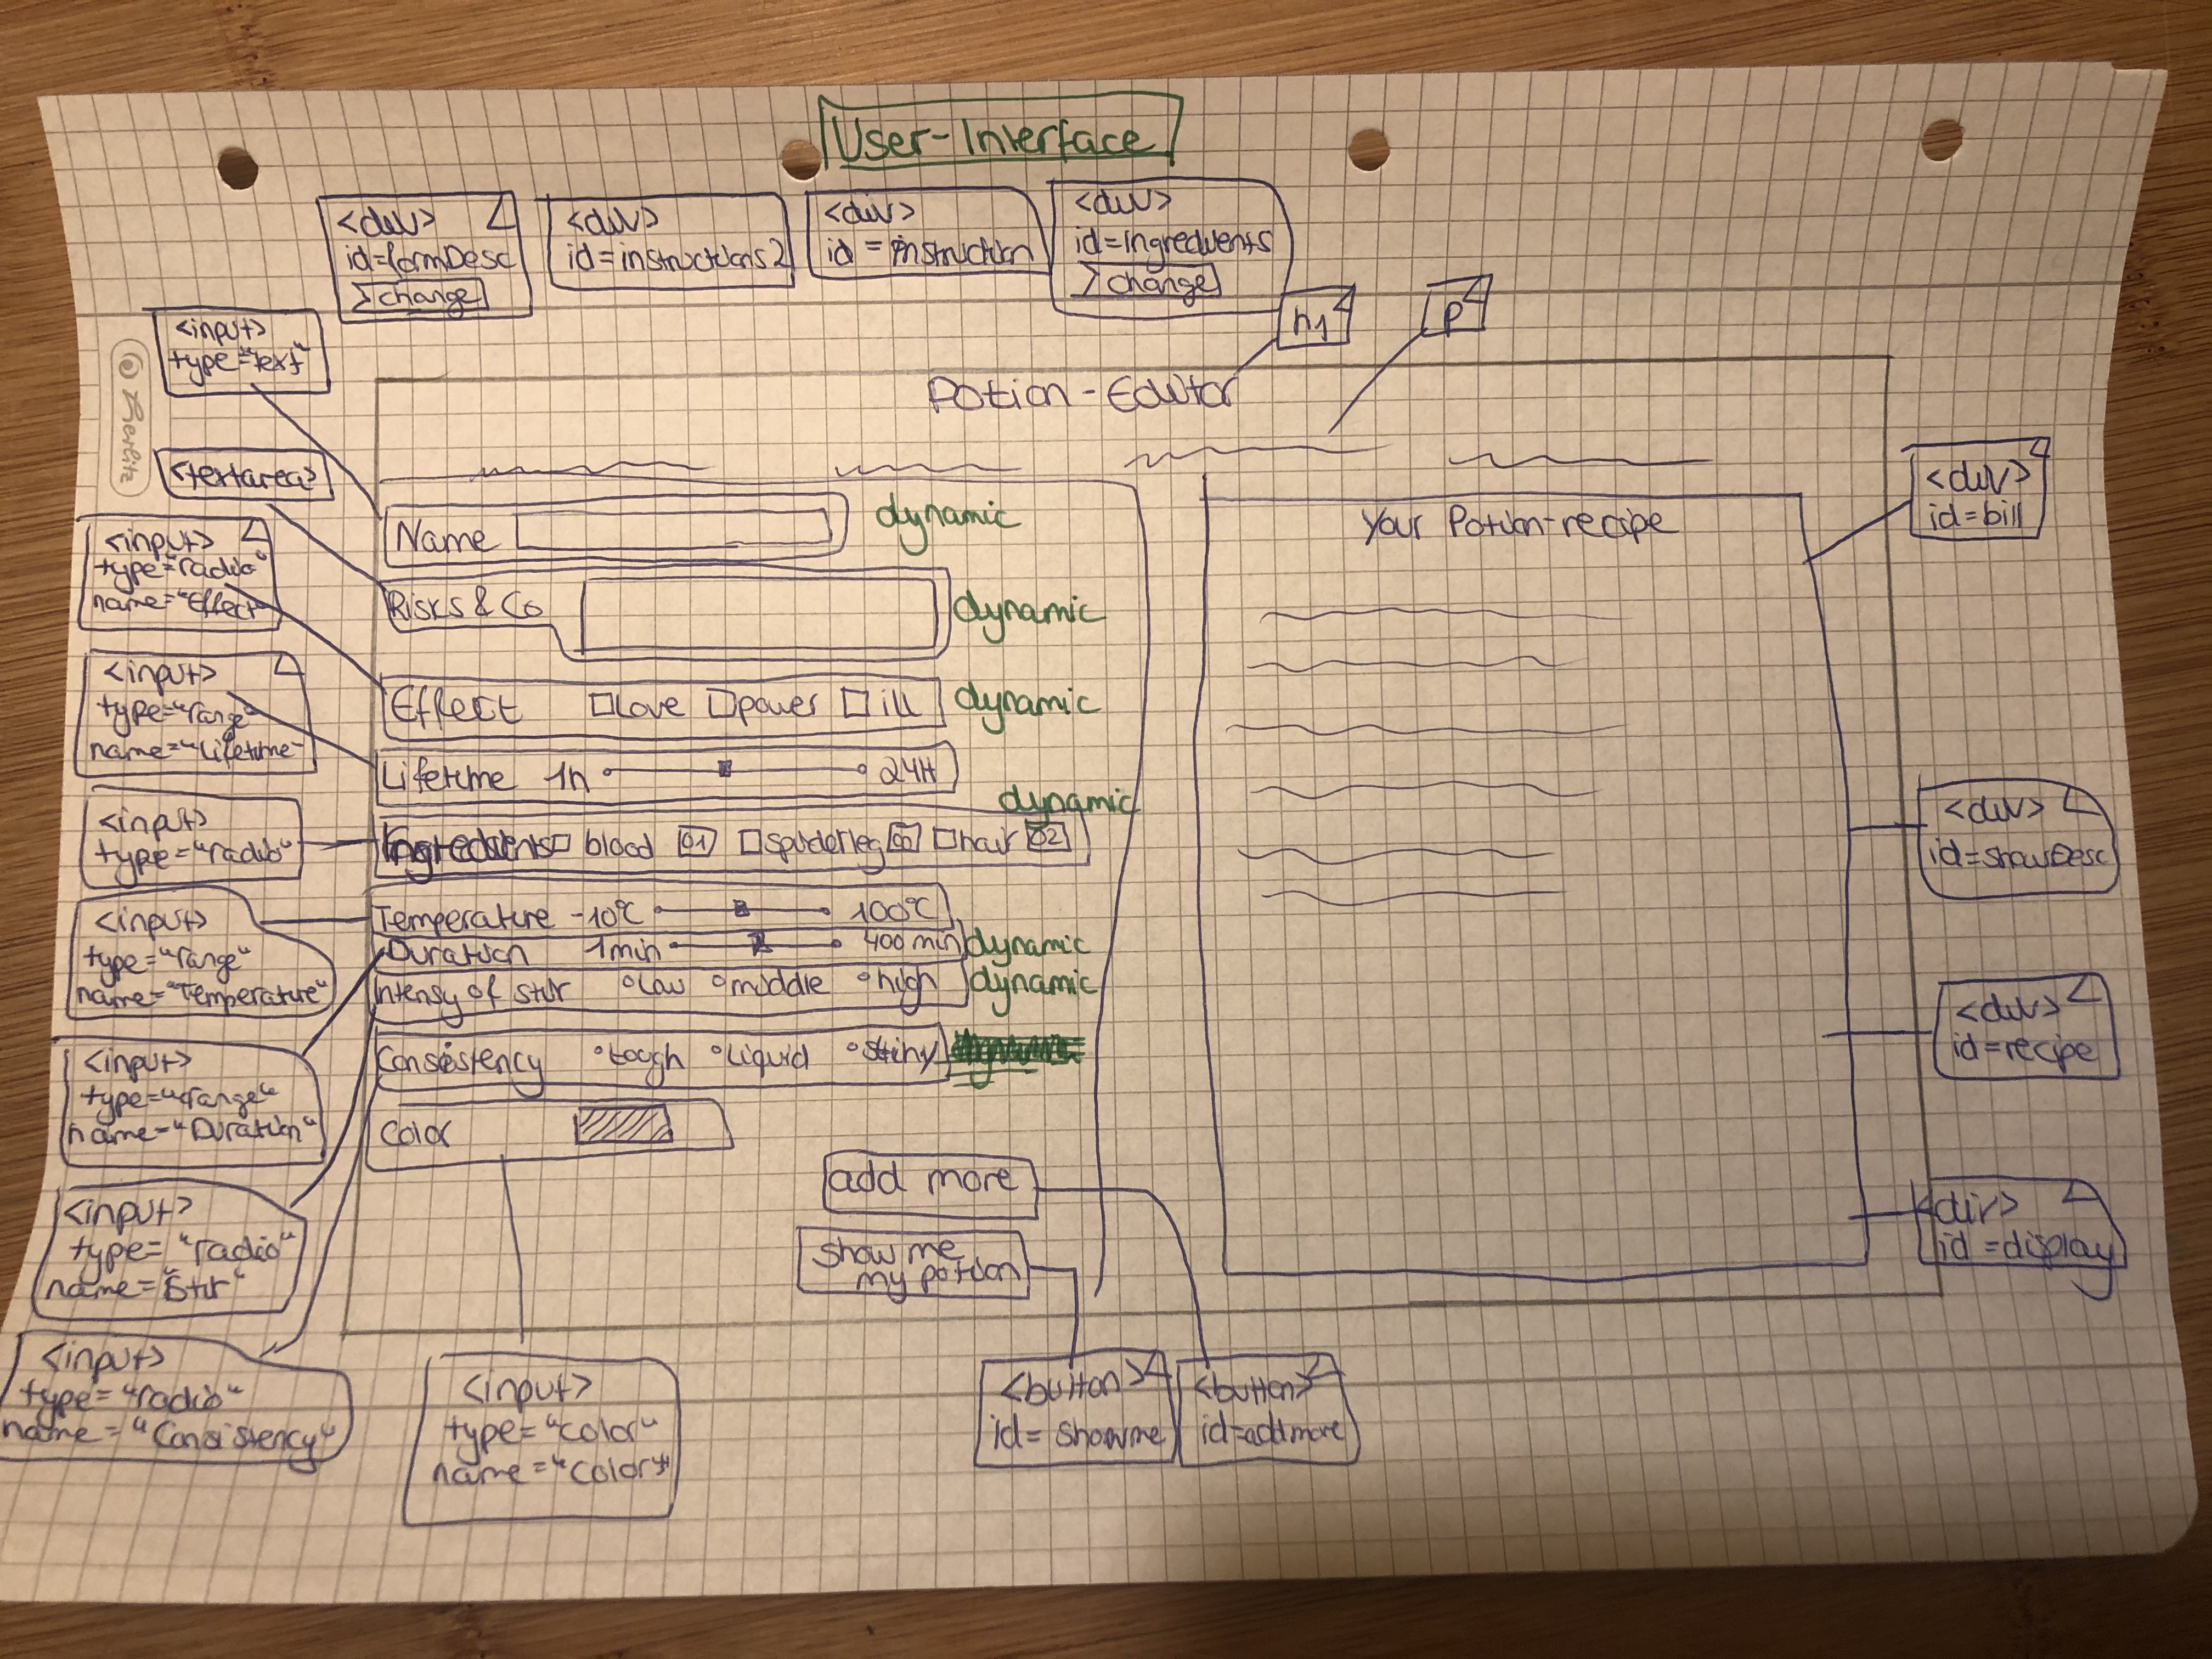 User-Interface
<div>
id=formDesc
change
<div>
id=instructions2
<div>
id=instruction
<div>
id=ingredients
change
h1
p
Potion-Editor
<input>
type="text"
<textarea>
<input>
type="radio"
name="Effect"
<input>
type="range"
name="Lifetime"
<input>
type="radio"
<input>
type="range"
name="Temperature"
<input>
type="range"
name="Duration"
<input>
type="radio"
name="Stir"
<input>
type="radio"
name="Consistency"
<input>
type="color"
name="Color"
Name
dynamic
Risks & Co
dynamic
Effect □Love □power □ill
dynamic
Lifetime 1h 24H
dynamic
Ingredients □ blood 01 □spiderleg □hair 02
Temperature -10°C 100°C
Duration 1min 400min
dynamic
Intensy of stir °low °middle °high
dynamic
Consistency °tough °Liquid
Color
add more
Show me
my potion
<button>
id=showme
<button>
id=addmore
Your Potion-recipe
<div>
id=bill
<div>
id=showDesc
<div>
id=recipe
<div>
id=display
herlitz